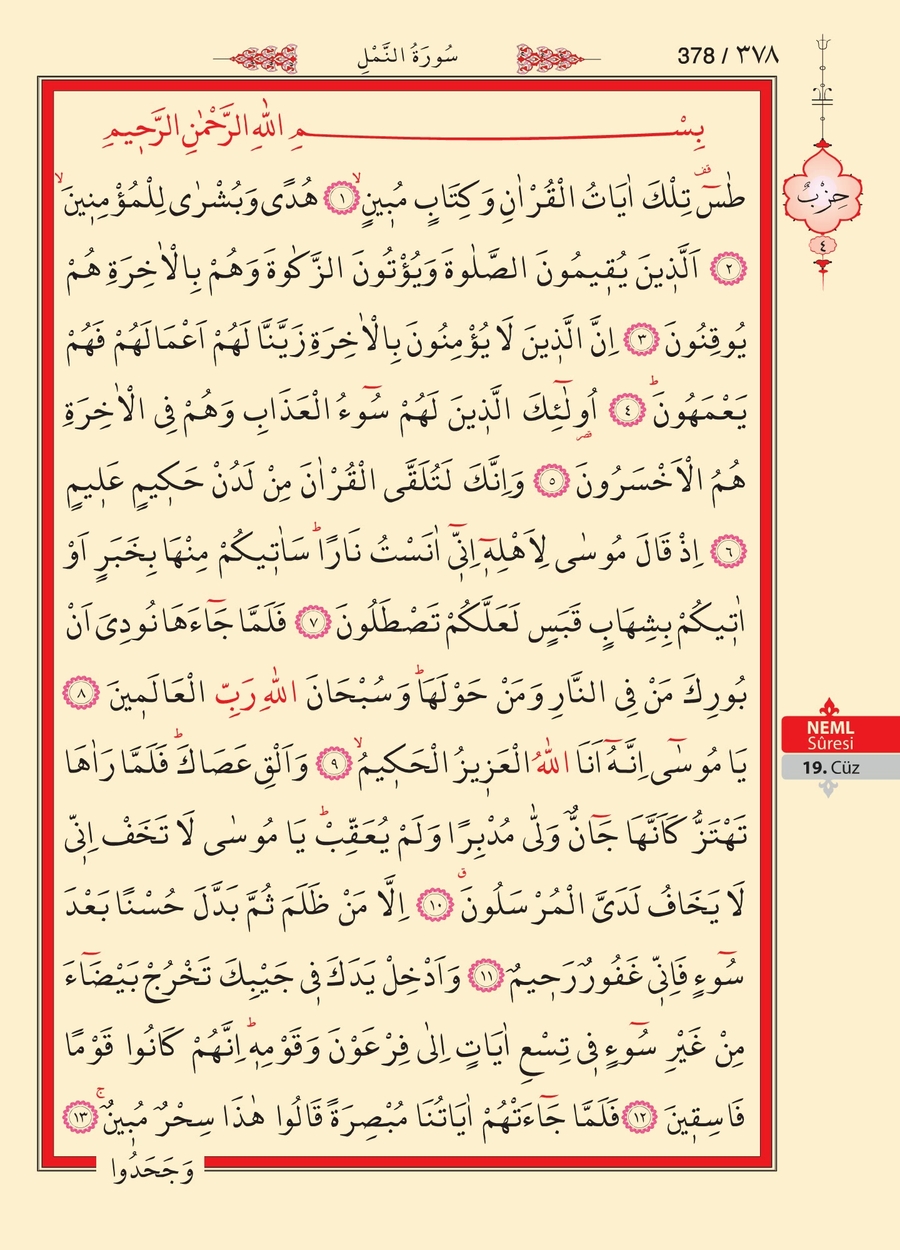 سُورَةُ النَّمْلِ
378 / ٣٧٨
بِسْمِ اللّٰهِ الرَّحْمٰنِ الرَّحٖيمِ
طٰسٓ تِلْكَ اٰيَاتُ الْقُرْاٰنِ وَكِتَابٍ مُبٖينٍۙ ﴿١﴾ هُدًى وَبُشْرٰى لِلْمُؤْمِنٖينَۙ
﴿٢﴾ اَلَّذٖينَ يُقٖيمُونَ الصَّلٰوةَ وَيُؤْتُونَ الزَّكٰوةَ وَهُمْ بِالْاٰخِرَةِ هُمْ
يُوقِنُونَ ﴿٣﴾ اِنَّ الَّذٖينَ لَا يُؤْمِنُونَ بِالْاٰخِرَةِ زَيَّنَّا لَهُمْ اَعْمَالَهُمْ فَهُمْ
يَعْمَهُونَؕ ﴿٤﴾ اُولٰٓئِكَ الَّذٖينَ لَهُمْ سُٓوءُ الْعَذَابِ وَهُمْ فِى الْاٰخِرَةِ
هُمُ الْاَخْسَرُونَ ﴿٥﴾ وَاِنَّكَ لَتُلَقَّى الْقُرْاٰنَ مِنْ لَدُنْ حَكٖيمٍ عَلٖيمٍ
﴿٦﴾ اِذْ قَالَ مُوسٰى لِاَهْلِهٖٓ اِنّٖٓى اٰنَسْتُ نَارًاؕ سَاٰتٖيكُمْ مِنْهَا بِخَبَرٍ اَوْ
اٰتٖيكُمْ بِشِهَابٍ قَبَسٍ لَعَلَّكُمْ تَصْطَلُونَ ﴿٧﴾ فَلَمَّا جَٓاءَهَا نُودِىَ اَنْ
بُورِكَ مَنْ فِى النَّارِ وَمَنْ حَوْلَهَاؕ وَسُبْحَانَ اللّٰهِ رَبِّ الْعَالَمٖينَ ﴿٨﴾
يَا مُوسٰٓى اِنَّهُٓ اَنَا اللّٰهُ الْعَزٖيزُ الْحَكٖيمُۙ ﴿٩﴾ وَاَلْقِ عَصَاكَؕ فَلَمَّا رَاٰهَا
تَهْتَزُّ كَاَنَّهَا جَٓانٌّ وَلّٰى مُدْبِرًا وَلَمْ يُعَقِّبْؕ يَا مُوسٰى لَا تَخَفْ اِنّٖى
لَا يَخَافُ لَدَىَّ الْمُرْسَلُونَࣗ ﴿١٠﴾ اِلَّا مَنْ ظَلَمَ ثُمَّ بَدَّلَ حُسْنًا بَعْدَ
سُٓوءٍ فَاِنّٖى غَفُورٌ رَحٖيمٌ ﴿١١﴾ وَاَدْخِلْ يَدَكَ فٖى جَيْبِكَ تَخْرُجْ بَيْضَٓاءَ
مِنْ غَيْرِ سُٓوءٍ فٖى تِسْعِ اٰيَاتٍ اِلٰى فِرْعَوْنَ وَقَوْمِهٖؕ اِنَّهُمْ كَانُوا قَوْمًا
فَاسِقٖينَ ﴿١٢﴾ فَلَمَّا جَٓاءَتْهُمْ اٰيَاتُنَا مُبْصِرَةً قَالُوا هٰذَا سِحْرٌ مُبٖينٌۚ ﴿١٣﴾
وَجَحَدُوا
حِزْبٌ
٤
NEML
Sûresi
19. Cüz